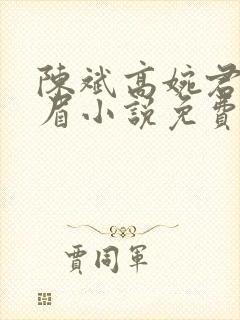 陳斌高婉君
眉小說免費
賈同軍